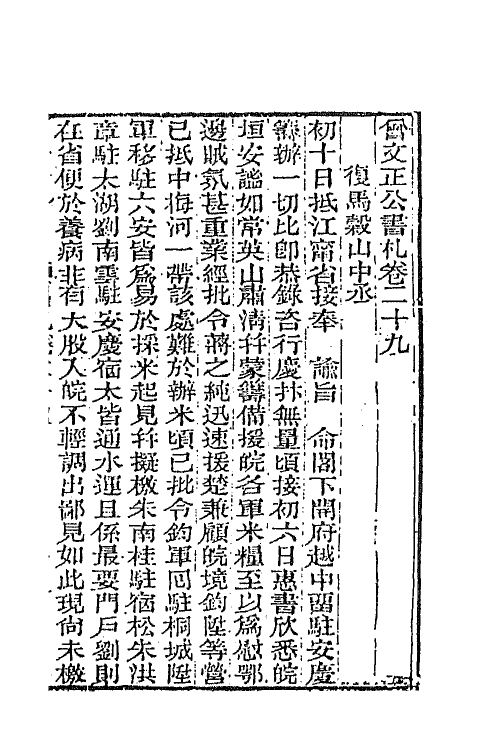 曾文正公書札卷二十九
復馬穀山中丞
初十日抵江甯省接奉　諭旨　命閣下開府越中留駐安慶
籌辦一切比卽恭錄咨行慶抃無量頃接初六日惠書欣悉皖
垣安謐如常英山肅淸幷蒙籌備援皖各軍米糧至以爲慰鄂
邊賊氛甚重業經批令蔣之純迅速援楚兼顧皖境鈞陞等營
已抵中梅河一帶該處難於辦米頃已批令鈞軍回駐桐城陞
軍移駐六安皆爲易於採米起見幷擬檄朱南桂駐宿松朱洪
章駐太湖劉南雲駐安慶宿太皆通水運且係最要門戶劉則
在省便於養病非有大股入皖不輕調出鄙見如此現尙未檄